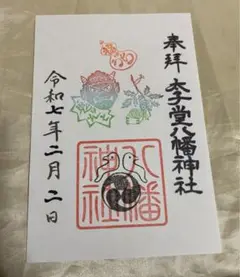 奉拝
太子堂八幡神社
令和七年二月二日
八幡
神社